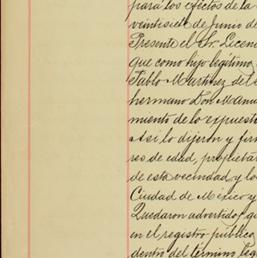 para los efectos de la
veintisiete de junio de
Presente el Sr. Licen
que como hijo legítimo,
Pablo Martinez del
hermano Don Manu
miento de lo expuesto
Así lo dijeron y firm
res de edad, propietar
de esta vecindad y lo
Ciudad de México y
Quedaron advertidos que
en el registro público,
dentro del término leg